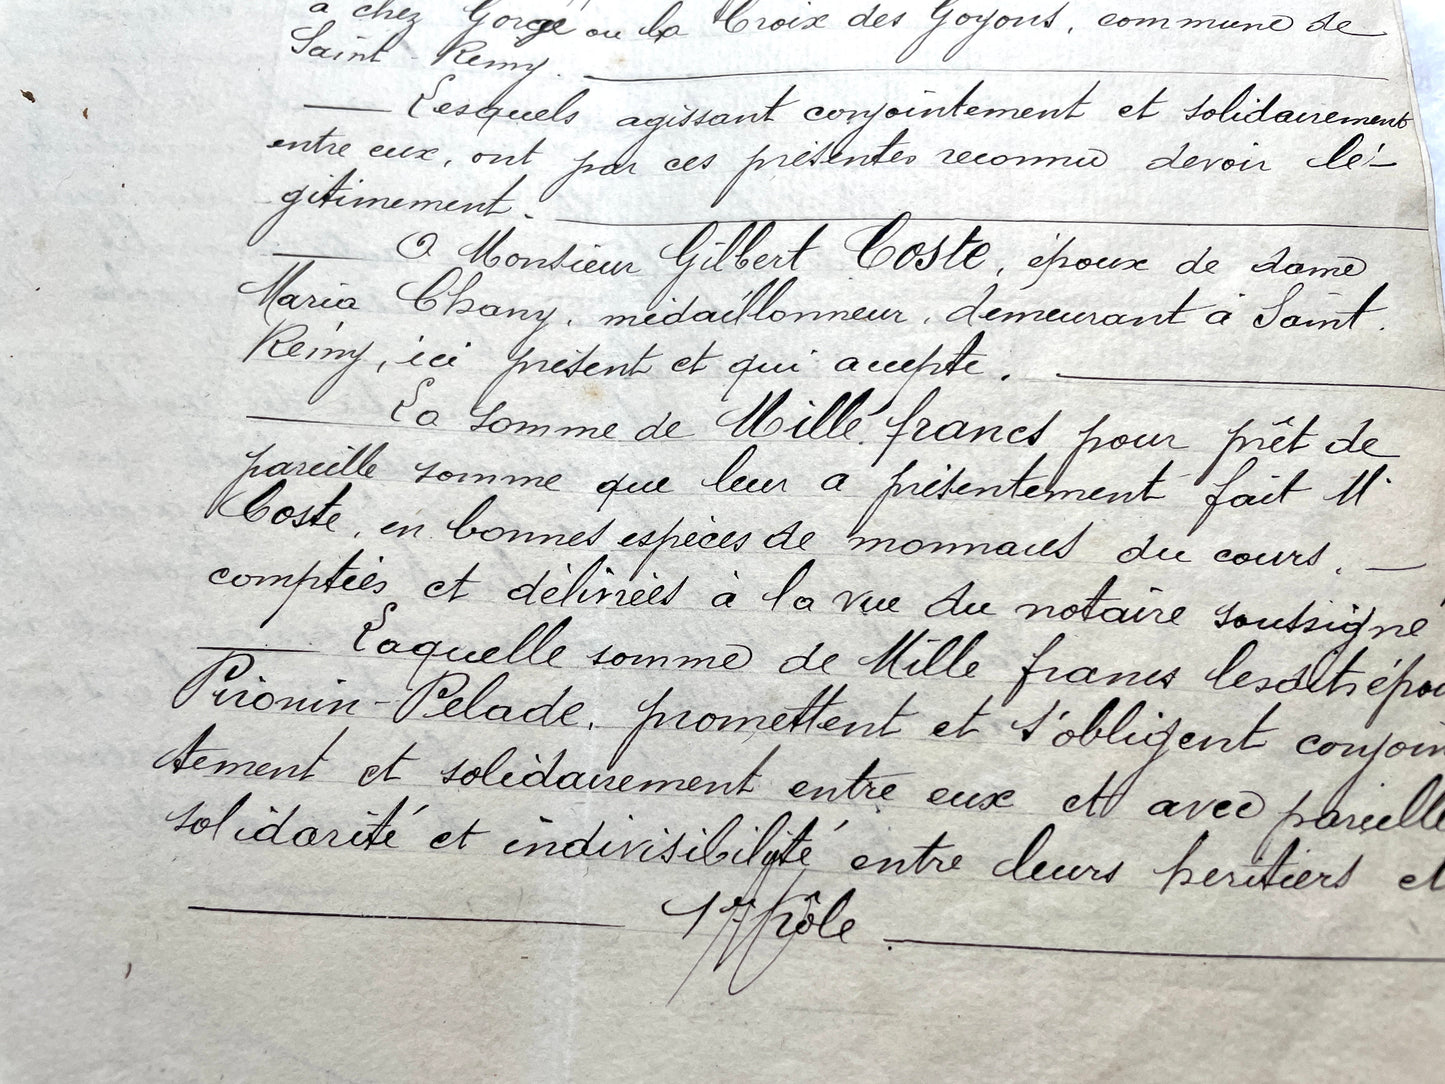 à chez Gorge ou la Croix des Goyons, commune de
Saint-Rémy.
Lesquels agissant conjointement et solidairement
entre eux, ont par ces présentes reconnu devoir lé-
gitimement.
A Monsieur Gilbert Coste, époux de dame
Maria Chany, médaillonneur, demeurant à Saint-
Rémy, ici présent et qui accepte.
La somme de Mille francs pour prêt de
pareille somme que leur a présentement fait Mr
Coste, en bonnes espèces de monnaies du cours,
comptées et délivrées à la vue du notaire soussigné
Laquelle somme de Mille francs lesdits épou
Pironin-Pelade, promettent et s'obligent conjoin
tement et solidairement entre eux et avec pareille
solidarité et indivisibilité entre leurs héritiers et
1er Rôle